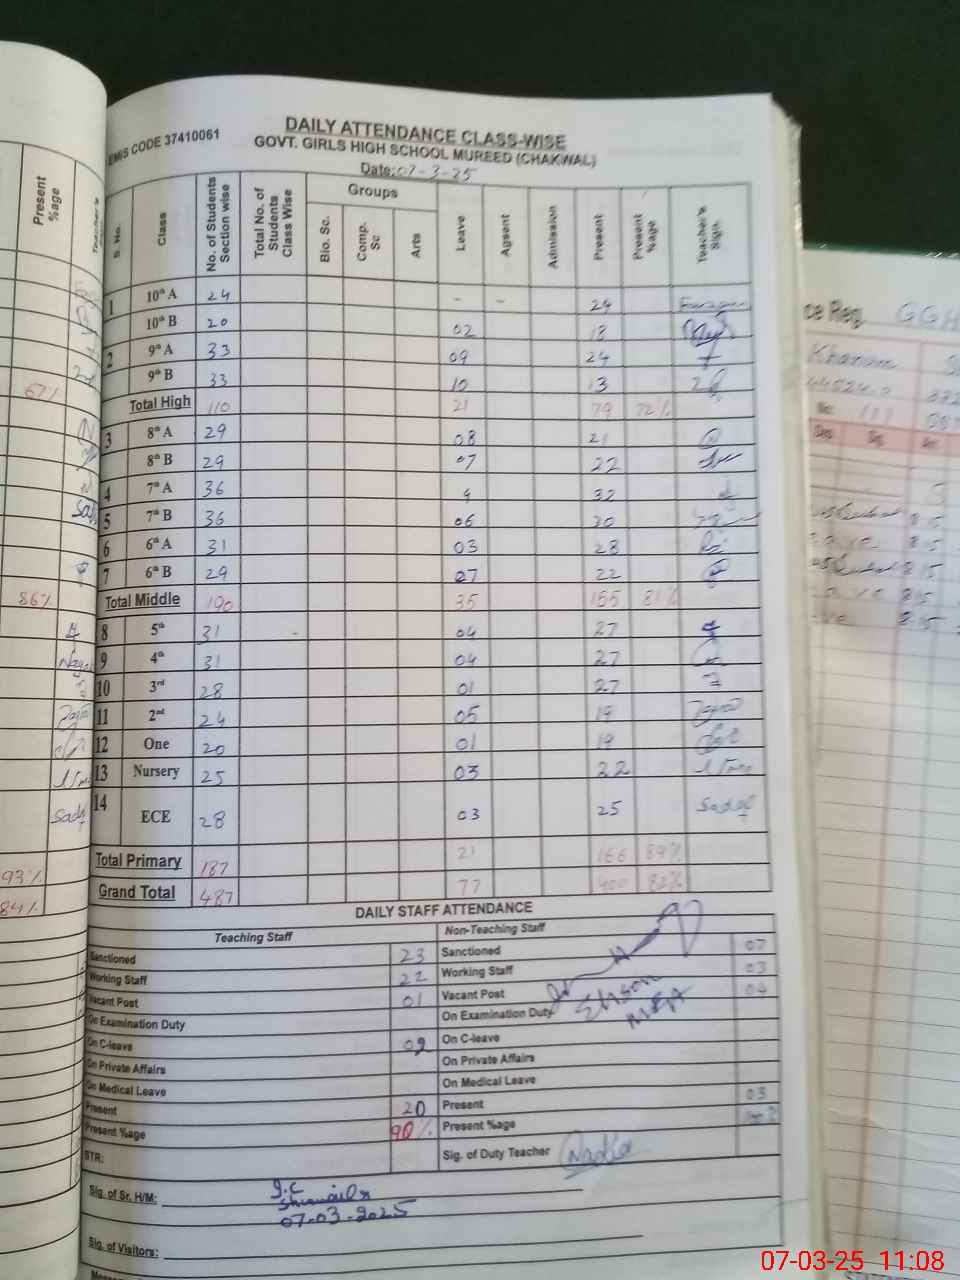 EMIS CODE 37410061
DAILY ATTENDANCE CLASS-WISE
GOVT. GIRLS HIGH SCHOOL MUREED (CHAKWAL)
Date: 07-3-25
S. No. Class No. of Students Section wise Total No. of Students Class Wise Groups Bio. Sc. Comp. Sc Arts Leave Agsent Admission Present Present %age Teacher's Sign.
1 10th A 24 - - 24
10th B 20 02 18
2 9th A 33 09 24
9th B 33 10 13
Total High 110 21 79 72%
3 8th A 29 08 21
8th B 29 07 22
4 7th A 36 4 32
5 7th B 36 06 30
6 6th A 31 03 28
7 6th B 29 07 22
Total Middle 190 35 155 81%
8 5th 31 - 04 27
9 4th 31 04 27
10 3rd 28 01 27
11 2nd 24 05 19
12 One 20 01 19
13 Nursery 25 03 22
14 ECE 28 03 25 Sadaf
Total Primary 187 21 166 89%
Grand Total 487 77 400 82%
DAILY STAFF ATTENDANCE
Teaching Staff Non-Teaching Staff
Sanctioned 23 Sanctioned 07
Working Staff 22 Working Staff 03
Vacant Post 01 Vacant Post 04
On Examination Duty On Examination Duty
On C-leave 02 On C-leave
On Private Affairs On Private Affairs
On Medical Leave On Medical Leave
Present 20 Present 03
Present %age 90% Present %age 100%
STR: Sig. of Duty Teacher
Sig. of Sr. H/M: I.C
07-03-2025
Sig. of Visitors:
Present %age
67%
86%
93%
84%
ce Reg. GGH
Khanam
07-03-25 11:08